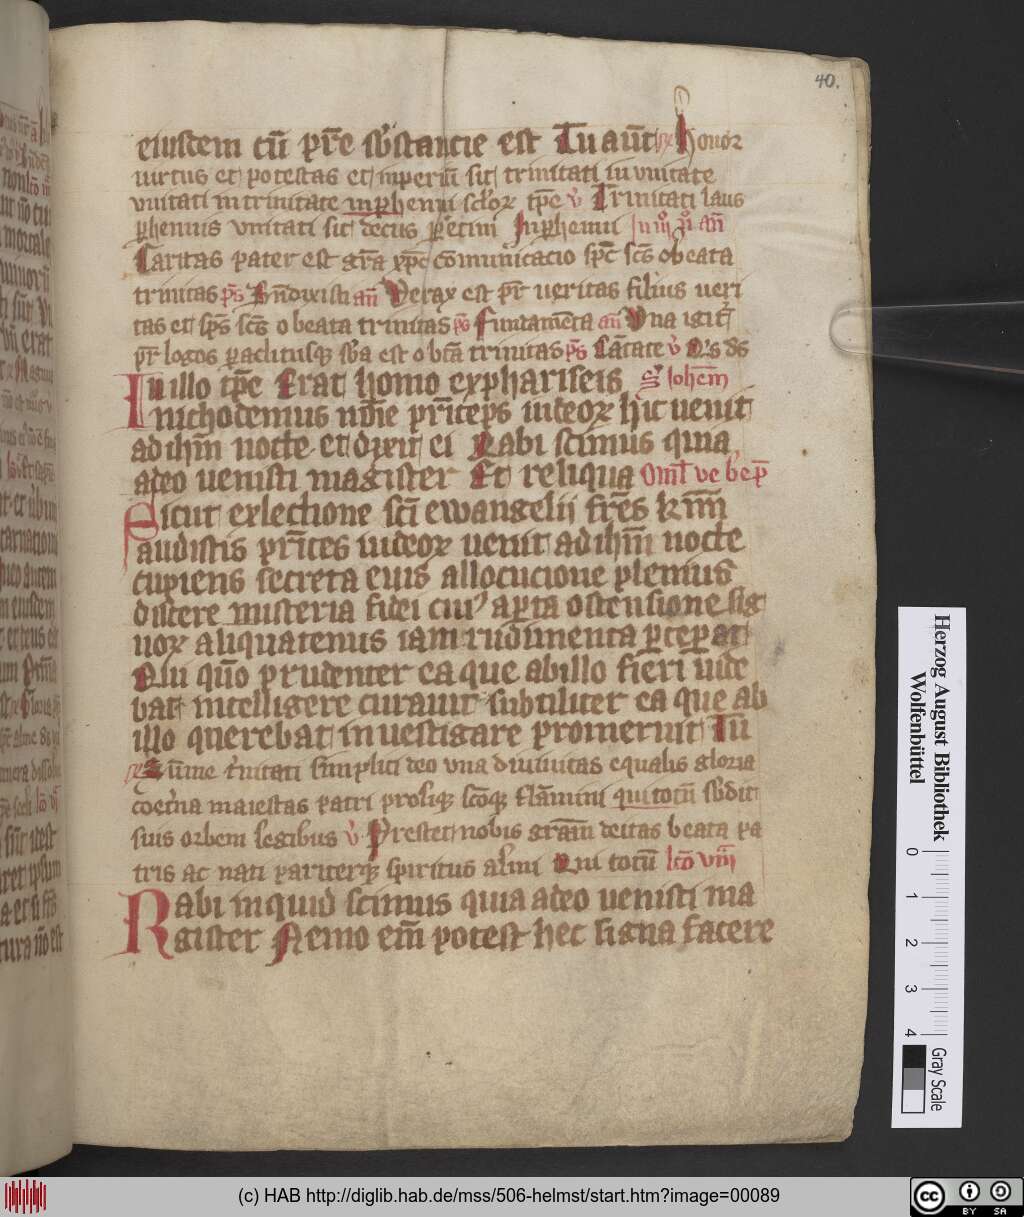 40.
eiusdem cū pr̄e sb̄stantie est Tu aūt R̷ Honor
uirtus et potestas et inperiū sit trinitati in unitate
unitati in trinitate in ꝑhenni sclor̄ tp̄e v̉ Trinitati laus
ꝑhennis vnitati sit decus ꝑetim Inꝑhenni
Caritas pater est gr̄a xp̄c cōmunicacio sp̄c sc̄s o beata
trinitas p̄s Bn̄dixisti an̄ Verax est pr̄ ueritas filius ueri
tas et sp̄s sc̄s o beata trinitas p̄s Fundamēta an̄ Vna igit᷑
pr̄ logos paclitusqꝫ sb̄a est o bt̄a trinitas p̄s Cātate v̉
In illo tp̄e Erat homo ex phariseis Iohem̄
nichodemus noīe pr̄iceps iudeoꝝ hic uenit
ad ihm̄ nocte et dixit ei Rabi scimus quia
a deo uenisti magister Et reliqua Oml̄ ve be p̄
Sicut ex lectione sc̄i ewangelii fr̄es km̄i
audistis pr̄iceps iudeoꝝ uenit ad ihm̄ nocte
cupiens secreta eius allocucione plenius
discere misteria fidei cui᷒ aꝑta ostensione sig
noꝝ aliquatenus iam rudimenta ꝑceperat
Qui quō prudenter ea que ab illo fieri uide
bat intelligere curauit subtiliter ea que ab
illo querebat inuestigare promeruit Tū
R̷ Sūme t̓nitati simplici deo vna diuinitas equalis gloria
coet̓na maiestas patri proliqꝫ sc̄oqꝫ flāmini qui totū sb̄dit
suis orbem legibus v̉ Prestet nobis grām deitas beata pa
tris ac nati pariterqꝫ spiritus almi Qui totū lc̄o viii
Rabi inquid scimus quia a deo uenisti ma
gister Nemo em̄ potest hec signa facere
Herzog August Bibliothek
Wolfenbüttel
0 1 2 3 4
Gray Scale
(c) HAB http://diglib.hab.de/mss/506-helmst/start.htm?image=00089
cc BY SA